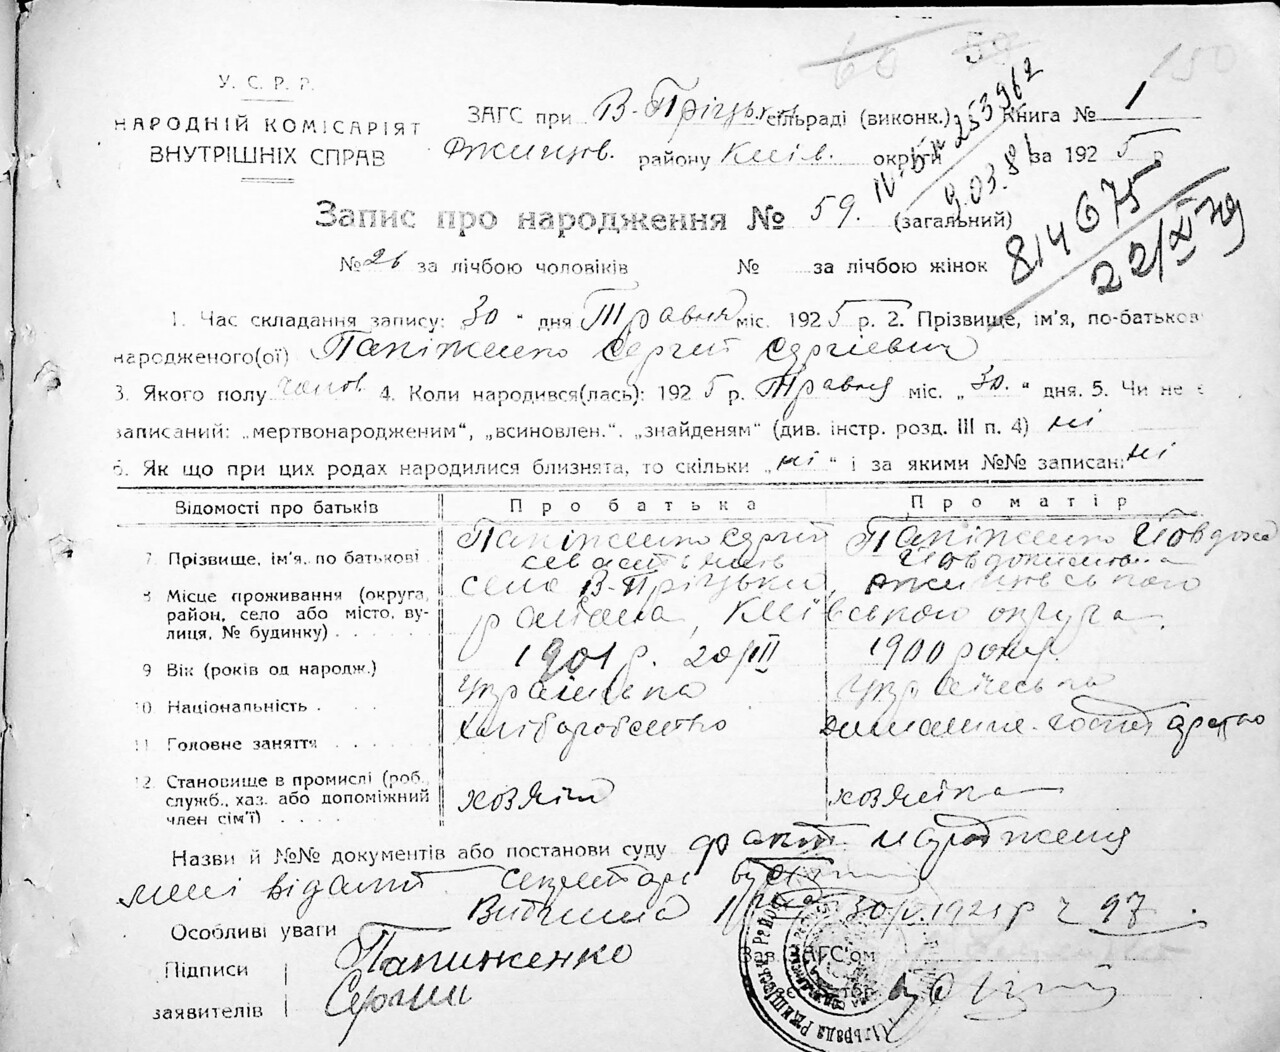 66 57 150
У. С. Р. Р.
НАРОДНІЙ КОМІСАРІЯТ
ВНУТРІШНІХ СПРАВ
ЗАГС при В-Пріцьк. сільраді (виконк.) Книга № 1
Ржищов. району Київ. округи за 1925 р
IV-БК 253962
9.03.81
Запис про народження № 59. (загальний)
814675
22/XI 79
№ 26 за лічбою чоловіків № за лічбою жінок
1. Час складання запису: 30 " дня Травня міс. 1925 р. 2. Прізвище, ім'я, по-батькові
народженого(ої) Папіженко Сергій Сергієвич
3. Якого полу чолов 4. Коли народився(лась): 1925 р. Травня міс. „ 30. " дня. 5. Чи не є
записаний: „мертвонародженим", „всиновлен.". „знайденям" (див. інстр. розд. III п. 4) ні
6. Як що при цих родах народилися близнята, то скільки „ ні " і за якими №№ записані ні
Відомості про батьків Про батька Про матір
7. Прізвище, ім'я, по батькові Папіженко Сергій Папіженко Йовдоха
8 Місце проживання (округа, район, село або місто, вулиця, № будинку) село В-Пріцьки, Ржищовського
района, Київського округа.
9 Вік (років од народж.) 1901 р. 20/III 1900 року.
10. Національність Українська Українська
11. Головне заняття Хліборобство Домашнє господарство
12. Становище в промислі (роб., служб., хаз. або допоміжний член сім'ї) хозяїн хозяїна
Назви й №№ документів або постанови суду факт народження
мені відомий Секретарь
Особливі уваги Ч 97.
Підписи заявителів Папиженко
Сергий
Зав. ЗАГС'ом